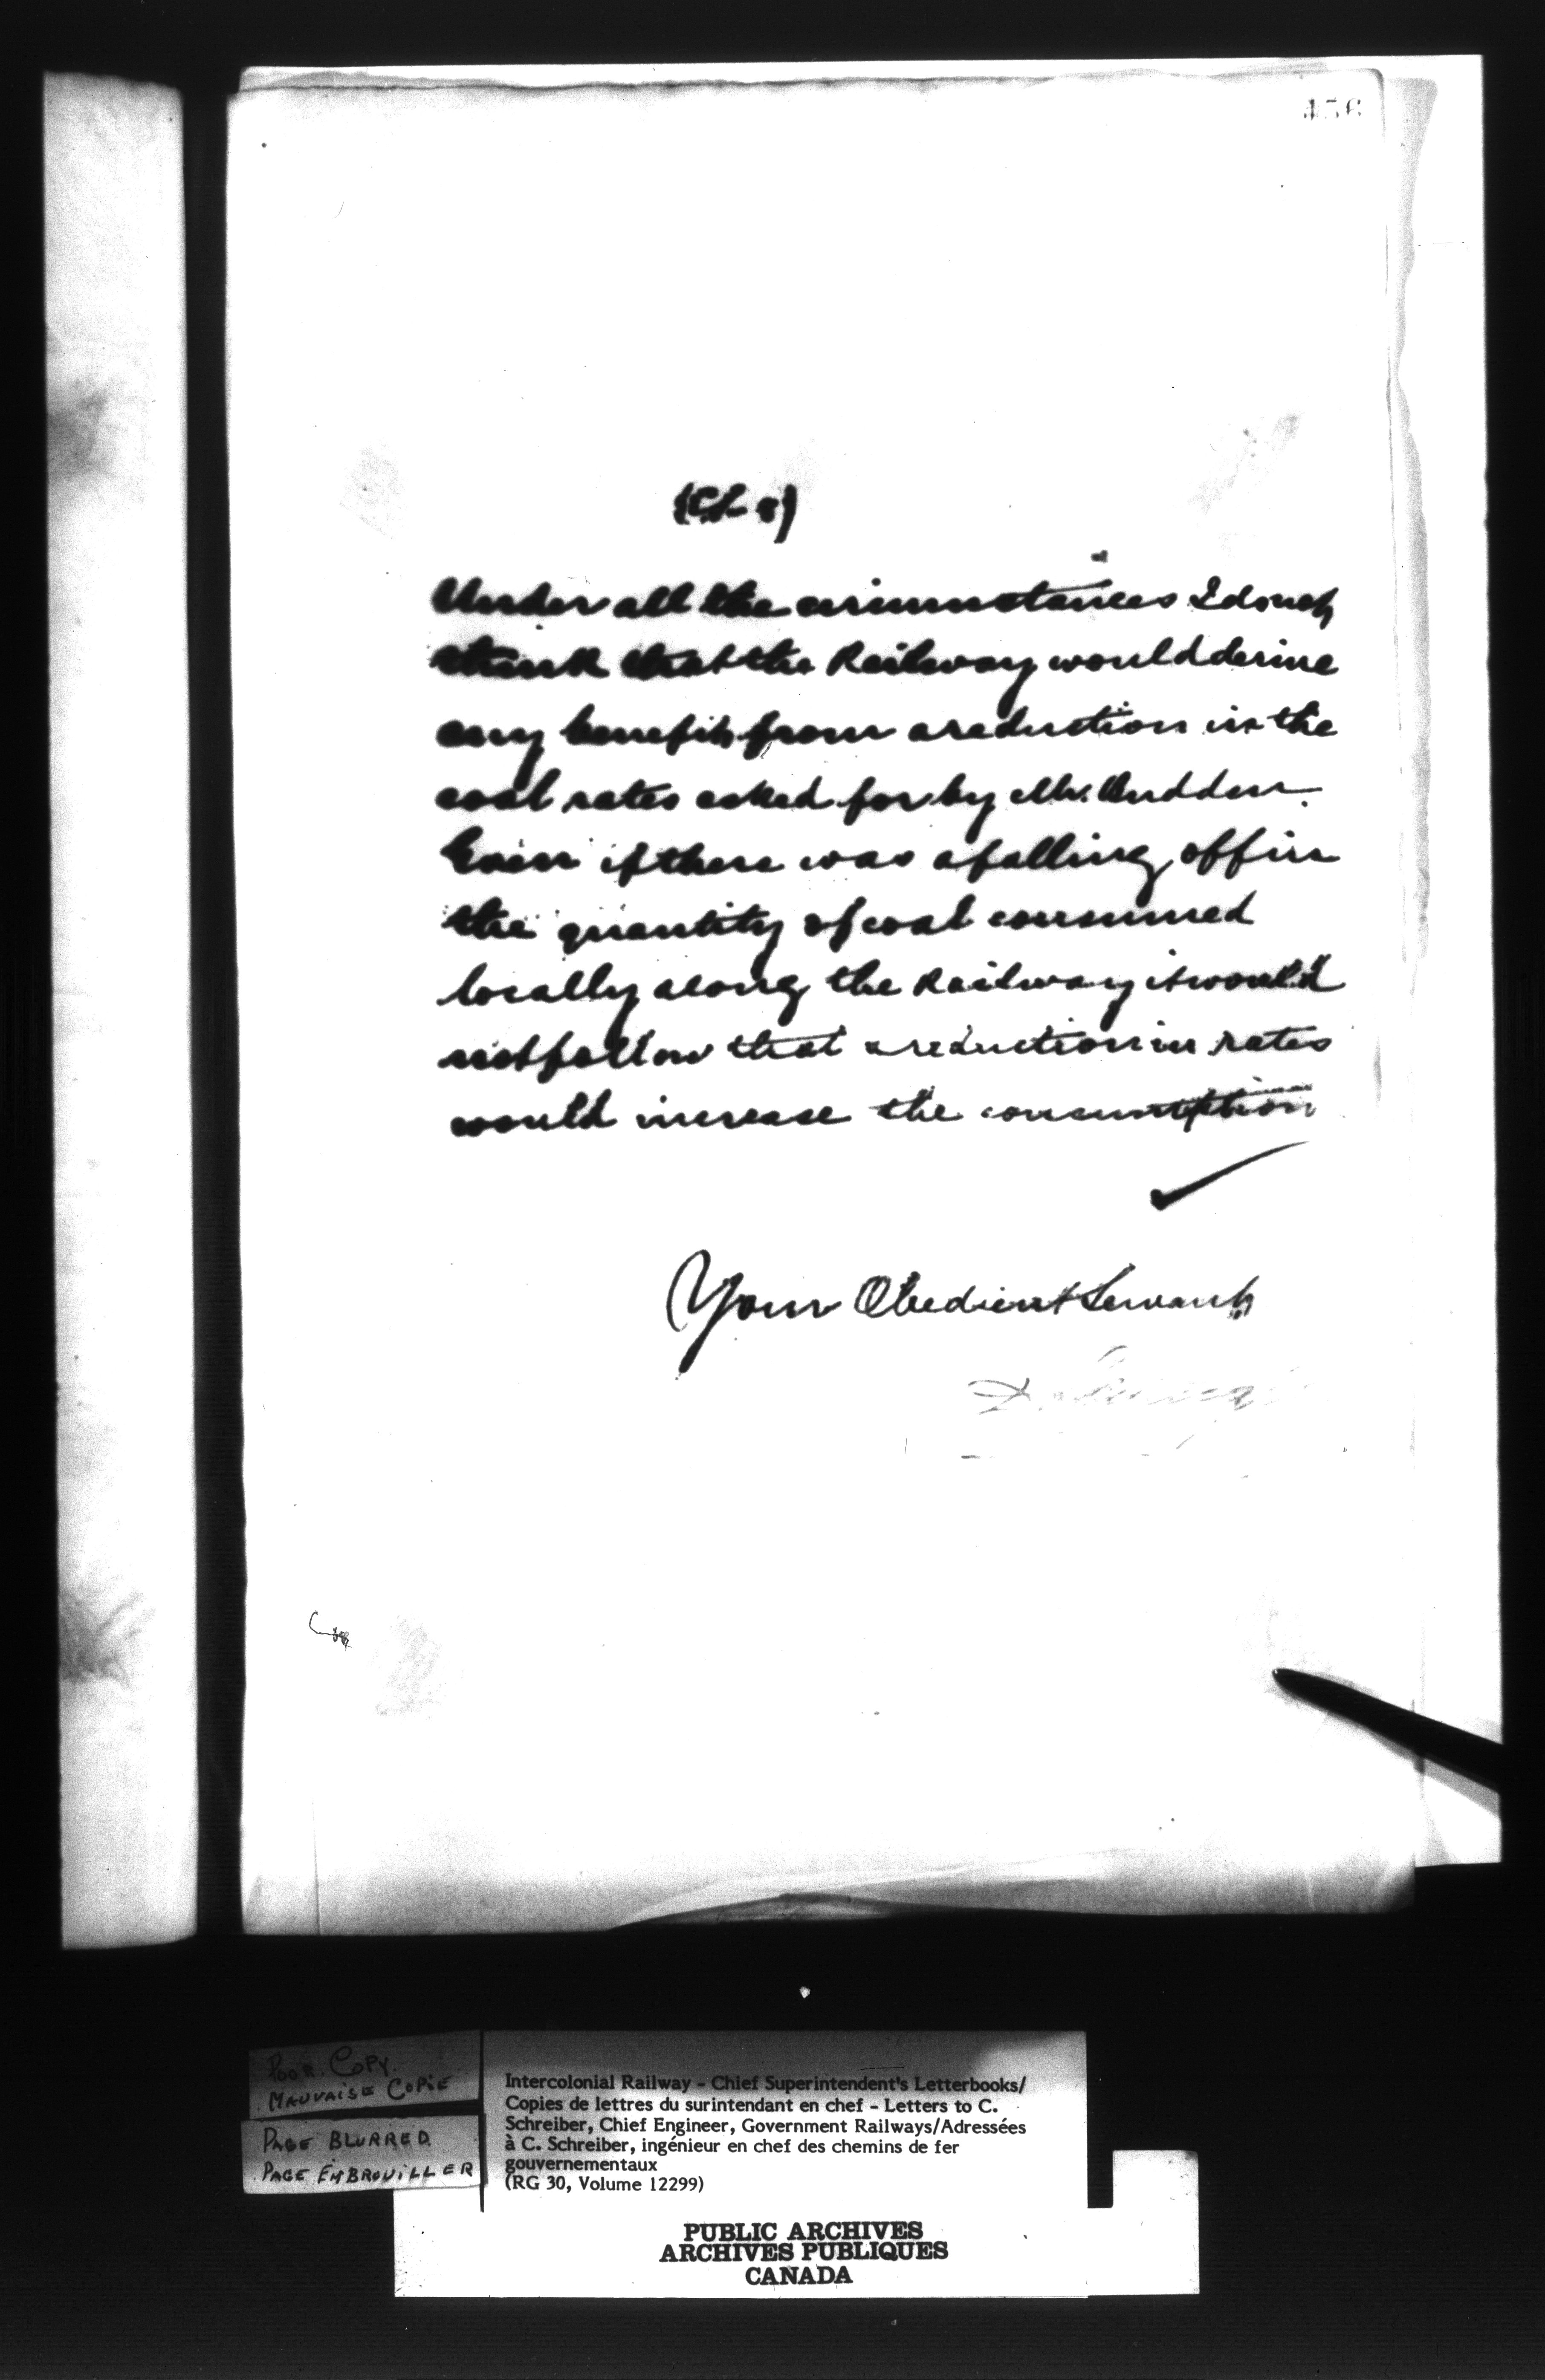 456
Under all the circumstances I do not
think that the Railway would derive
any benefit from a reduction in the
coal rates asked for by Mr. Budden.
Even if there was a falling off in
the quantity of coal consumed
locally along the Railway it would
not follow that a reduction in rates
would increase the consumption
Your Obedient Servant
POOR COPY.
MAUVAISE COPIE
PAGE BLURRED
PAGE EMBROUILLER
Intercolonial Railway - Chief Superintendent's Letterbooks/
Copies de lettres du surintendant en chef - Letters to C.
Schreiber, Chief Engineer, Government Railways/Adressées
à C. Schreiber, ingénieur en chef des chemins de fer
gouvernementaux
(RG 30, Volume 12299)
PUBLIC ARCHIVES
ARCHIVES PUBLIQUES
CANADA